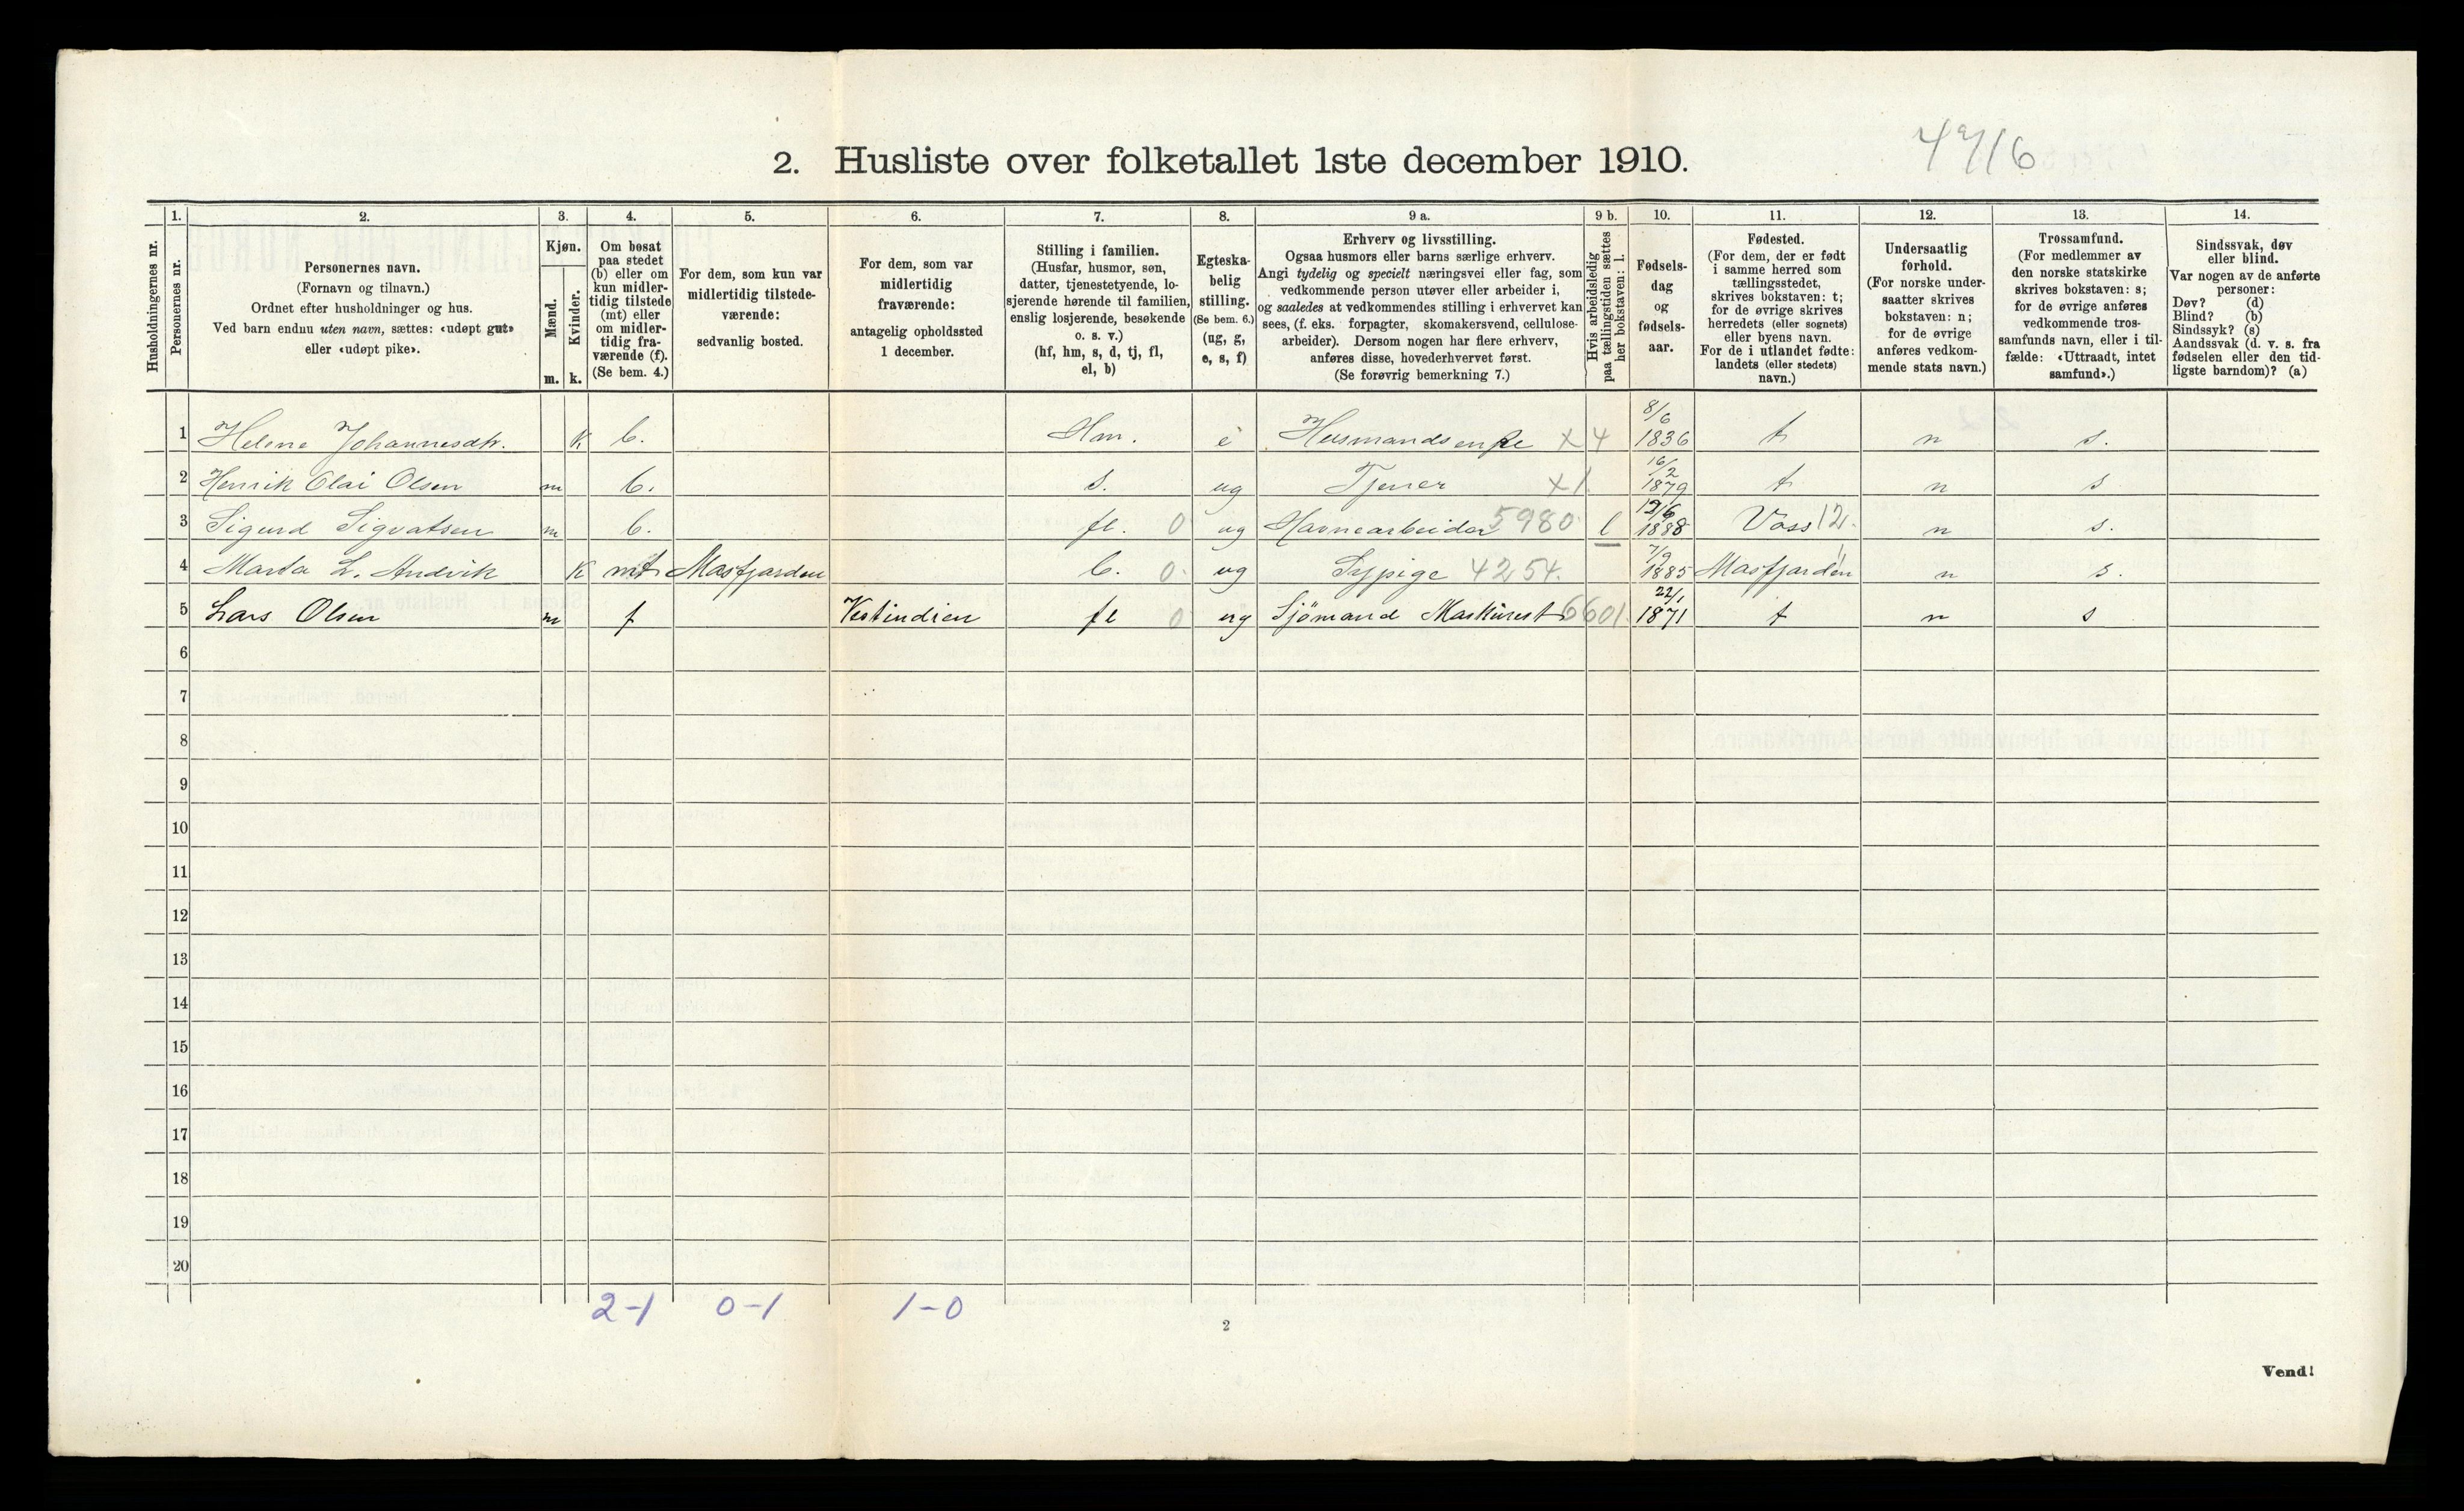 2. Husliste over folketallet 1ste december 1910.
1. 2. 3. 4. 5. 6. 7. 8. 9 a. 9 b. 10. 11. 12. 13. 14.
Husholdningernes nr.
Personernes nr.
Personernes navn.
(Fornavn og tilnavn.)
Ordnet efter husholdninger og hus.
Ved barn endnu uten navn, sættes: «udøpt gut»
eller «udøpt pike».
Kjøn.
Mænd.
Kvinder.
m. k.
Om bosat
paa stedet
(b) eller om
kun midler-
tidig tilstede
(mt) eller
om midler-
tidig fra-
værende (f).
(Se bem. 4.)
For dem, som kun var
midlertidig tilstede-
værende:
sedvanlig bosted.
For dem, som var
midlertidig
fraværende:
antagelig opholdssted
1 december.
Stilling i familien.
(Husfar, husmor, søn,
datter, tjenestetyende, lo-
sjerende hørende til familien,
enslig losjerende, besøkende
o. s. v.)
(hf, hm, s, d, tj, fl,
el, b)
Egteska-
belig
stilling.
(Se bem. 6.)
(ug, g,
e, s, f)
Erhverv og livsstilling.
Ogsaa husmors eller barns særlige erhverv.
Angi tydelig og specielt næringsvei eller fag, som
vedkommende person utøver eller arbeider i,
og saaledes at vedkommendes stilling i erhvervet kan
sees, (f. eks. forpagter, skomakersvend, cellulose-
arbeider). Dersom nogen har flere erhverv,
anføres disse, hovederhvervet først.
(Se forøvrig bemerkning 7.)
Hvis arbeidsledig
paa tællingstiden sættes
her bokstaven: l.
Fødsels-
dag
og
fødsels-
aar.
Fødested.
(For dem, der er født
i samme herred som
tællingsstedet,
skrives bokstaven: t;
for de øvrige skrives
herredets (eller sognets)
eller byens navn.
For de i utlandet fødte:
landets (eller stedets)
navn.)
Undersaatlig
forhold.
(For norske under-
saatter skrives
bokstaven: n;
for de øvrige
anføres vedkom-
mende stats navn.)
Trossamfund.
(For medlemmer av
den norske statskirke
skrives bokstaven: s;
for de øvrige anføres
vedkommende tros-
samfunds navn, eller i til-
fælde: «Uttraadt, intet
samfund».)
Sindssvak, døv
eller blind.
Var nogen av de anførte
personer:
Døv? (d)
Blind? (b)
Sindssyk? (s)
Aandssvak (d. v. s. fra
fødselen eller den tid-
ligste barndom)? (a)
1 Helene Johannesdtr. K b. Hm. e Husmandsenke x 4 8/6 1836 t n s.
2 Henrik Olai Olsen m b. s. ug Tjener x 1 16/2 1879 t n s
3 Sigurd Sigvatsen m b. fl. 0 ug Havnearbeider 5980 l 1888 Voss 12. n s.
4 Marta L. Andvik K mt Masfjorden b. 0 ug Sypige 4254. 7/9 1885 Masfjorden n s.
5 Lars Olsen m f Vestindien fl 0 ug Sjömand Maskinist 6601. 22/1 1871 t n s
6
7
8
9
10
11
12
13
14
15
16
17
18
19
20
2-1 0-1 1-0
2
Vend!